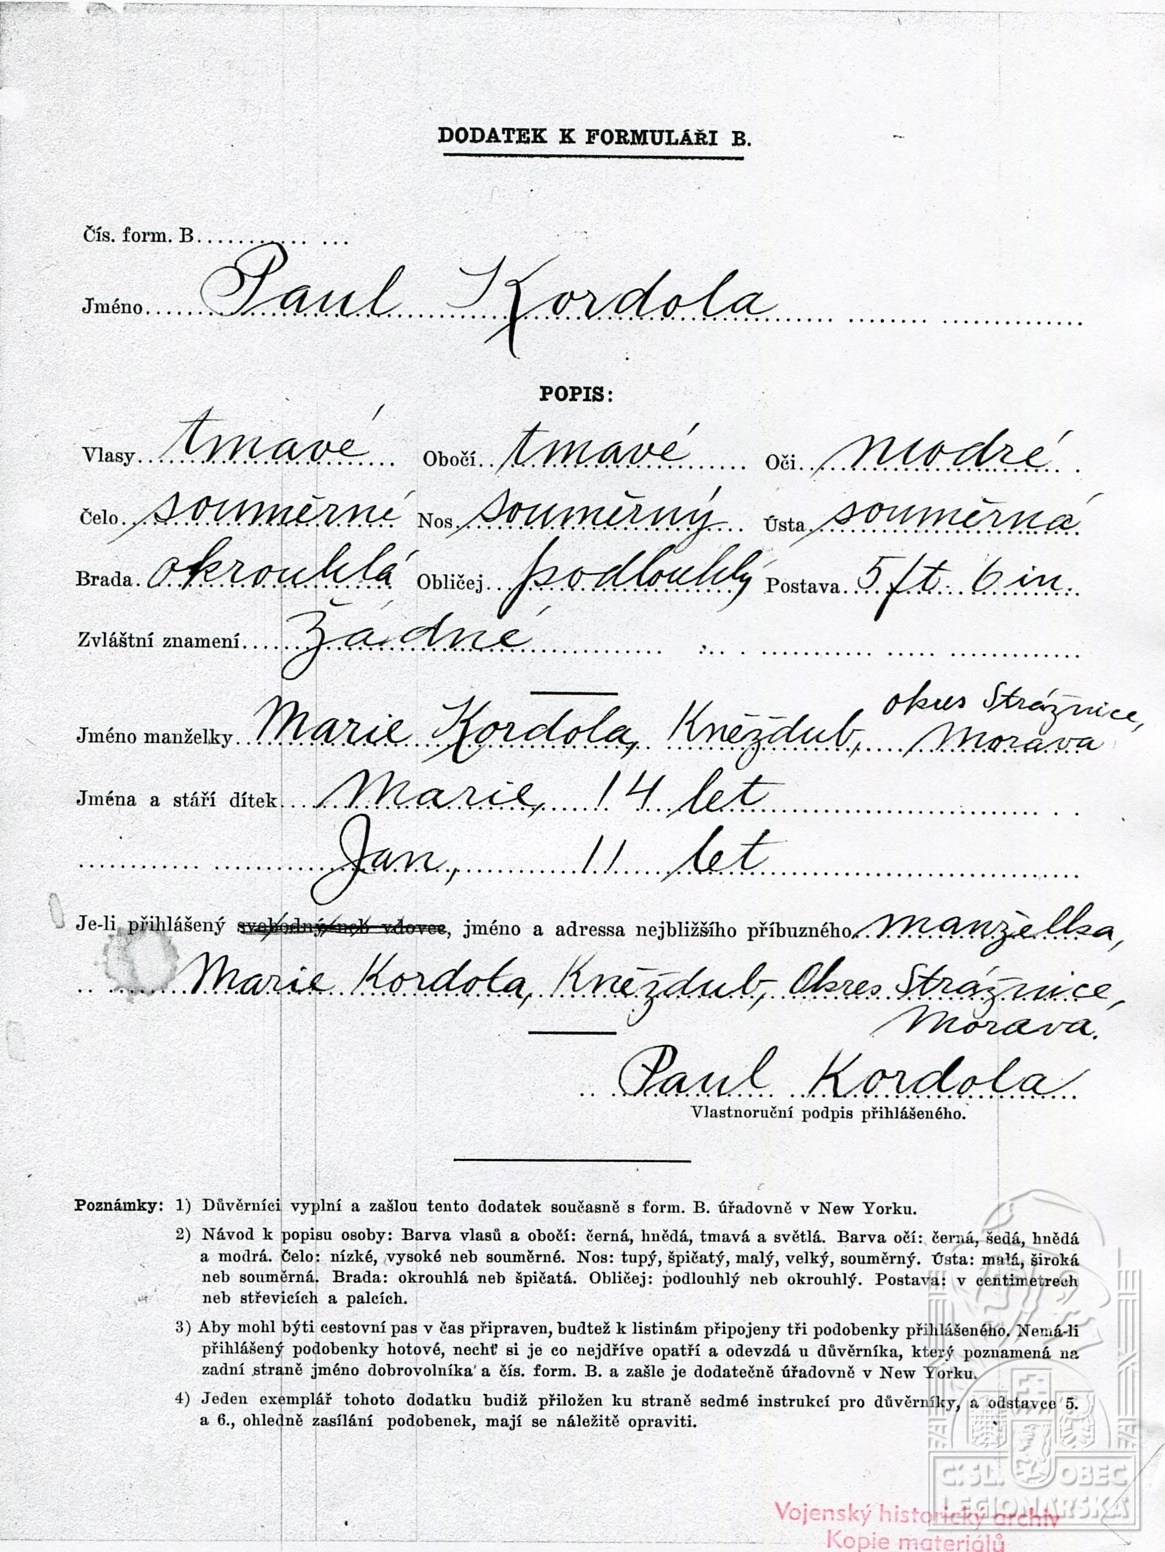 DODATEK K FORMULÁŘI B.
Čís. form. B............ ...
Jméno Paul Kordola
POPIS:
Vlasy tmavé Obočí tmavé Oči modré
Čelo souměrné Nos souměrný Ústa souměrná
Brada okrouhlá Obličej podlouhlý Postava 5 ft. 6 in.
Zvláštní znamení žádné
okres Strážnice,
Jméno manželky Marie Kordola, Kněždub, Morava
Jména a stáří dítek Marie, 14 let
Jan, 11 let
Je-li přihlášený svobodný neb vdovec, jméno a adressa nejbližšího příbuzného manželka,
Marie Kordola, Kněždub, Okres Strážnice,
Morava.
Paul Kordola
Vlastnoruční podpis přihlášeného.
Poznámky: 1) Důvěrníci vyplní a zašlou tento dodatek současně s form. B. úřadovně v New Yorku.
2) Návod k popisu osoby: Barva vlasů a obočí: černá, hnědá, tmavá a světlá. Barva očí: černá, šedá, hnědá
a modrá. Čelo: nízké, vysoké neb souměrné. Nos: tupý, špičatý, malý, velký, souměrný. Ústa: malá, široká
neb souměrná. Brada: okrouhlá neb špičatá. Obličej: podlouhlý neb okrouhlý. Postava: v centimetrech
neb střevicích a palcích.
3) Aby mohl býti cestovní pas v čas připraven, budtež k listinám připojeny tři podobenky přihlášeného. Nemá-li
přihlášený podobenky hotové, nechť si je co nejdříve opatří a odevzdá u důvěrníka, který poznamená na
zadní straně jméno dobrovolníka a čís. form. B. a zašle je dodatečně úřadovně v New Yorku.
4) Jeden exemplář tohoto dodatku budiž přiložen ku straně sedmé instrukcí pro důvěrníky, a odstavce 5.
a 6., ohledně zasílání podobenek, mají se náležitě opraviti.
Č.SL. OBEC
LEGIONÁŘSKÁ
Vojenský historický archiv
Kopie materiálů